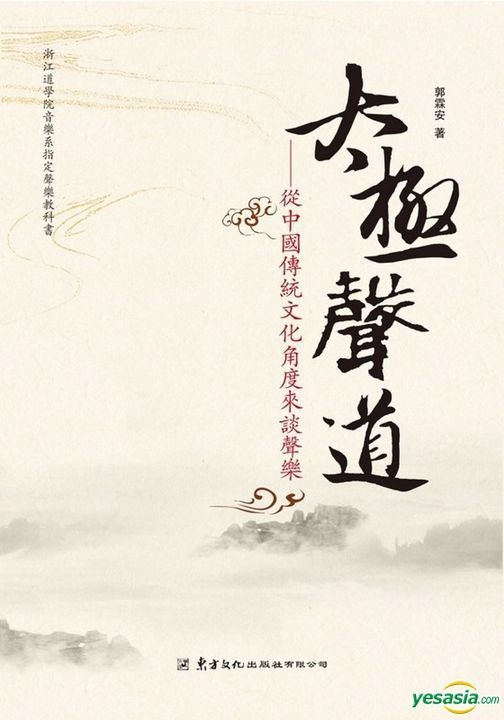 郭霖安 著
太極聲道
——從中國傳統文化角度來談聲樂
浙江道學院音樂系指定聲樂教科書
東方文化出版社有限公司
yesasia.com